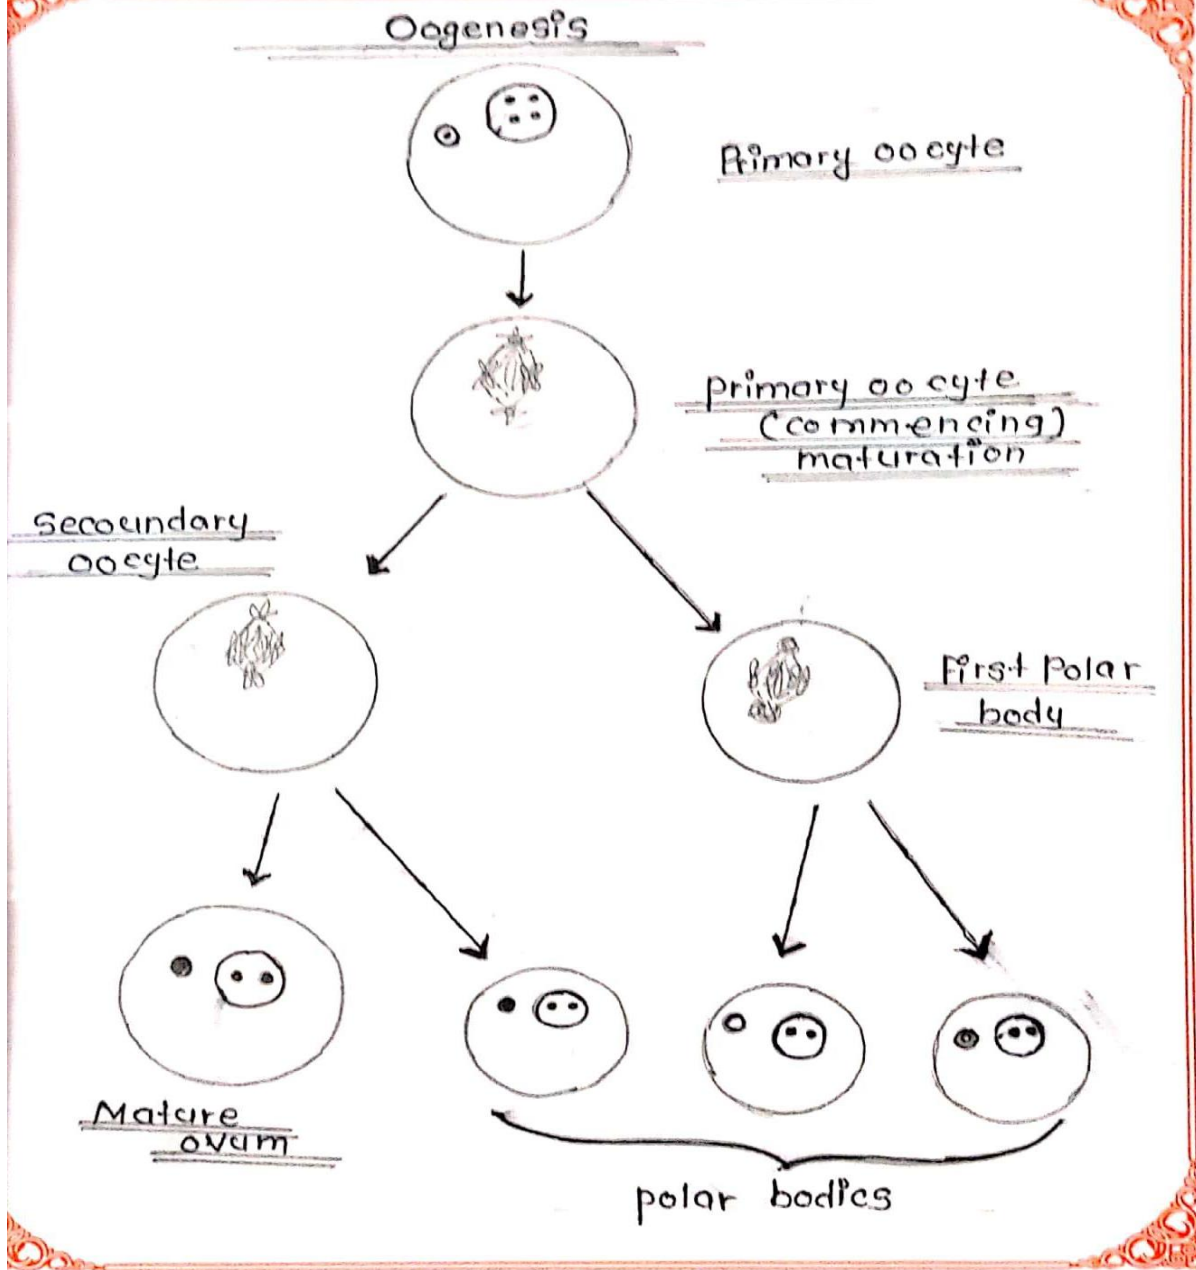 Oogenesis
Primary oocyte
primary oocyte
(commencing)
maturation
Secoundary
oocyte
First Polar
body
Mature
ovum
polar bodies